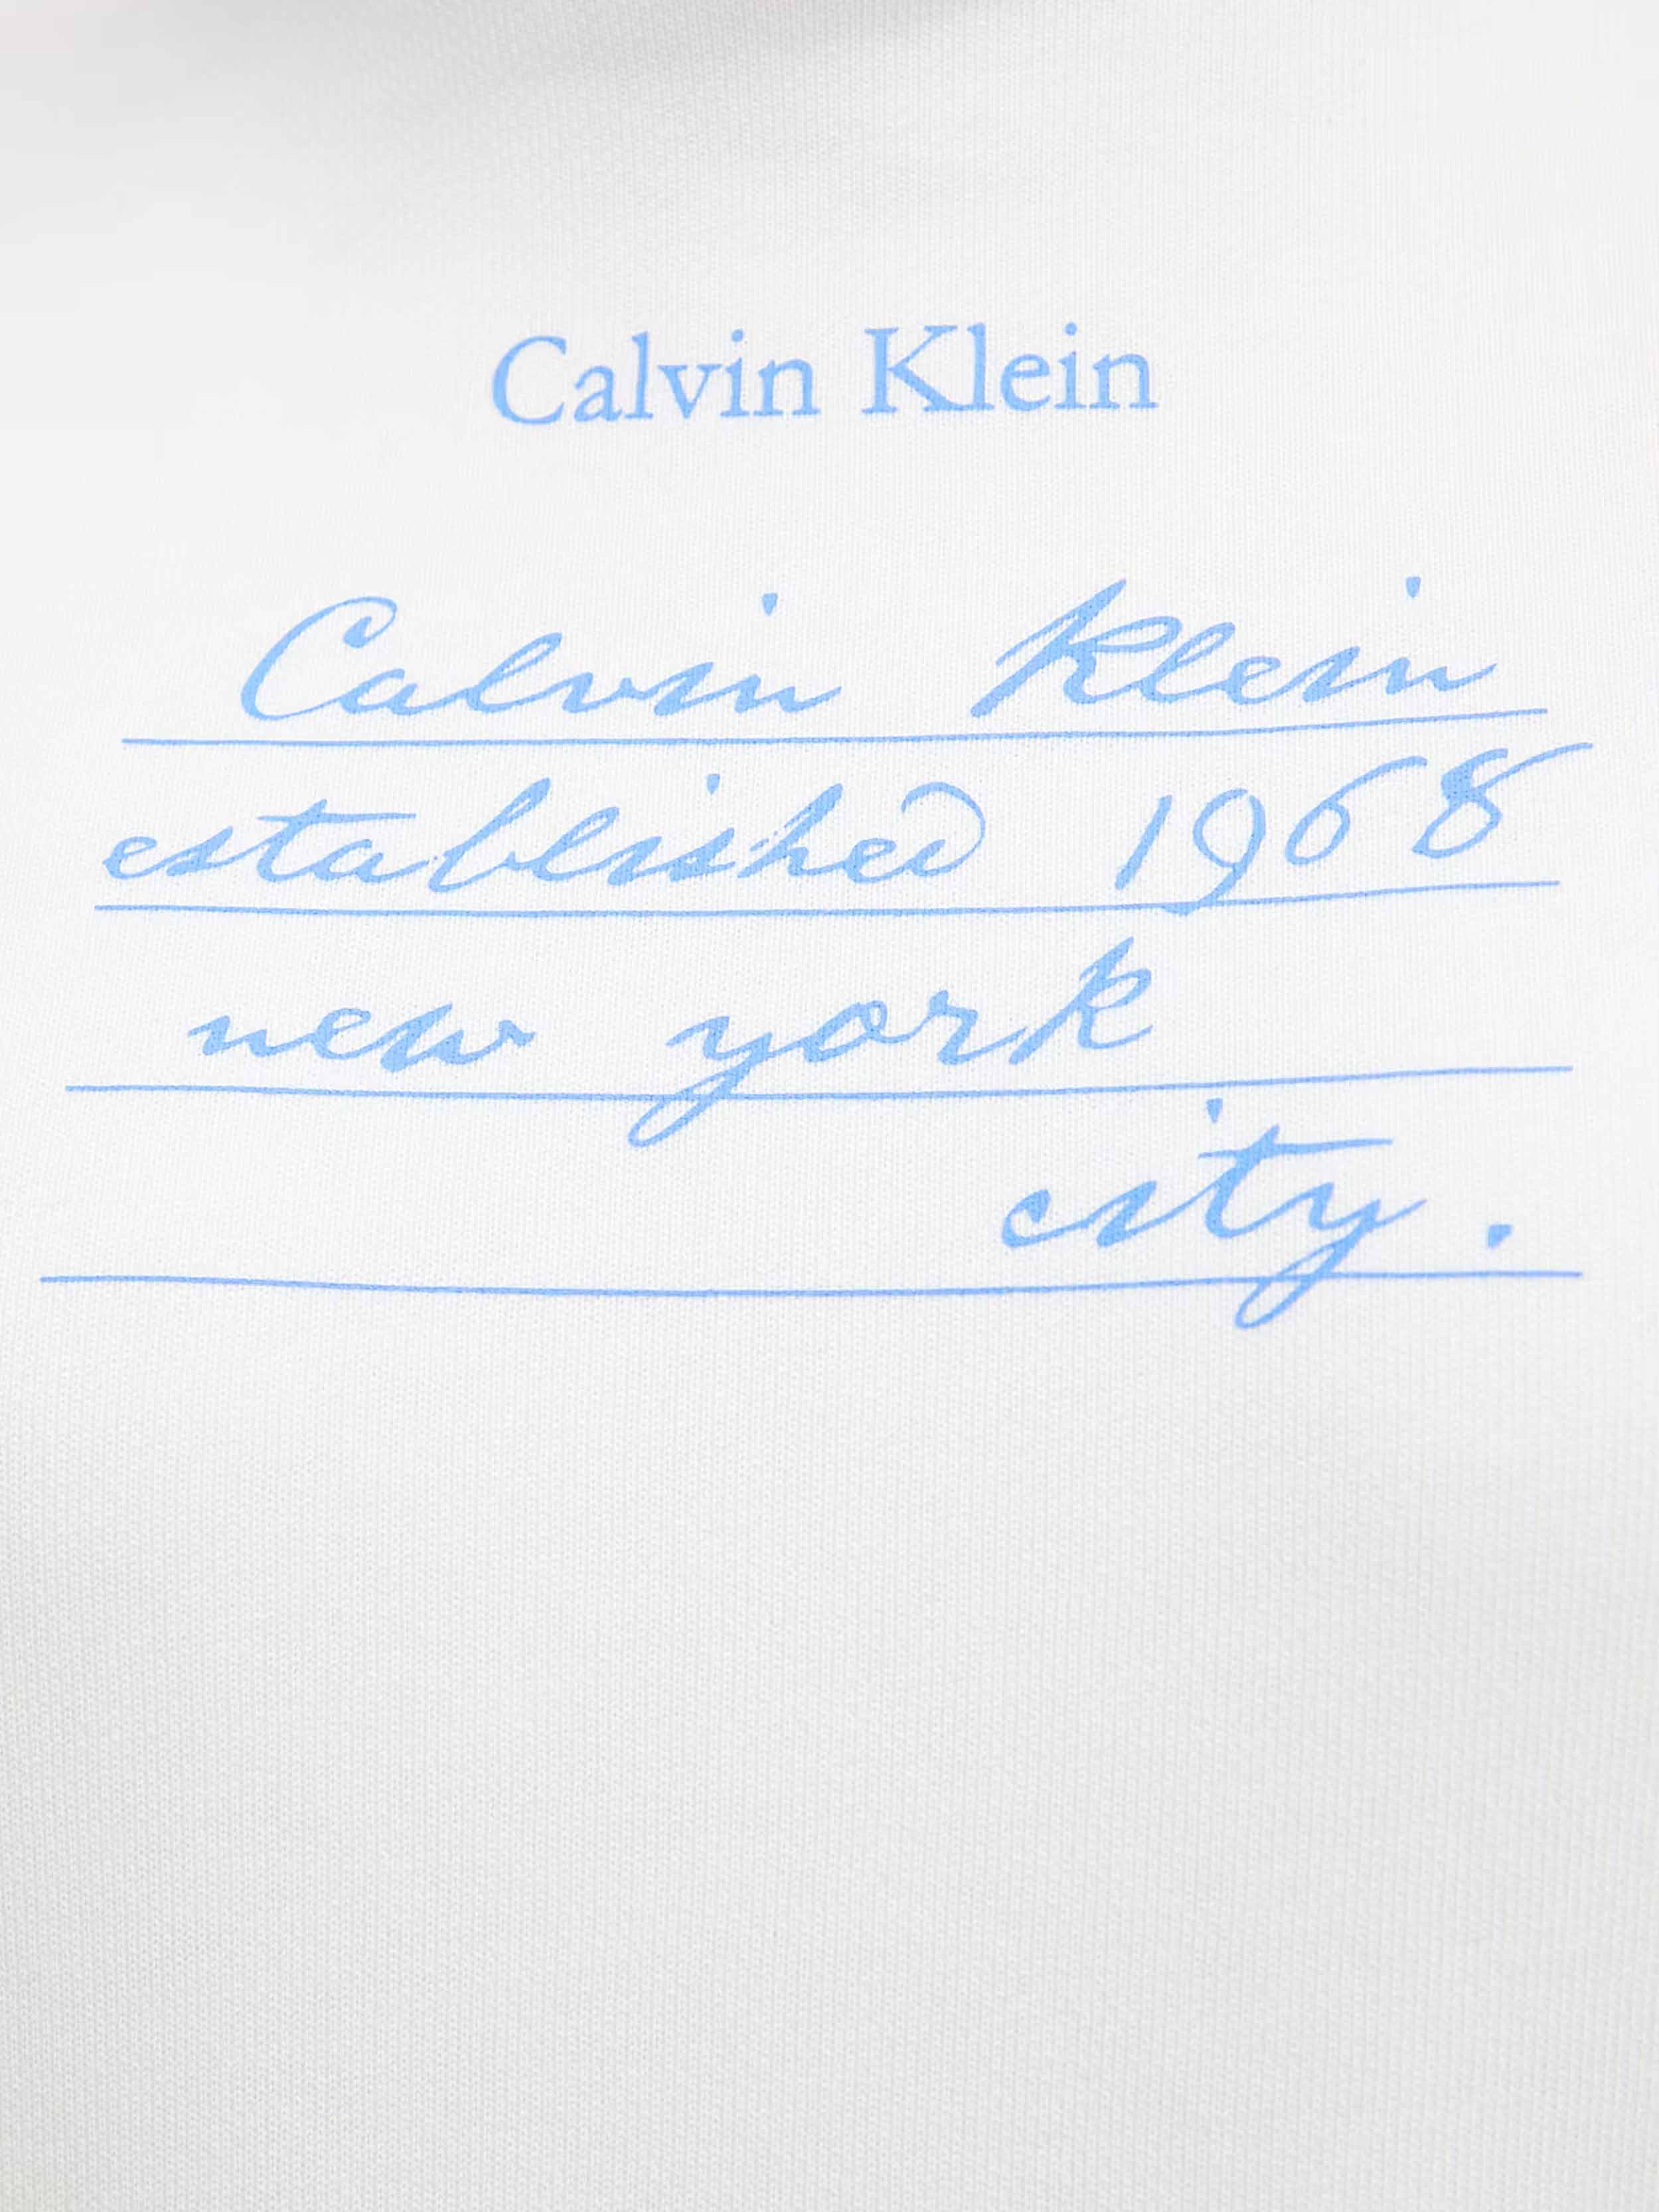 Calvin Klein
Calvin Klein
established 1968
new york
city.